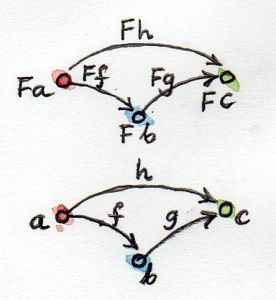 Fh
Fa Ff Fg Fc
Fb
h
a f g c
b